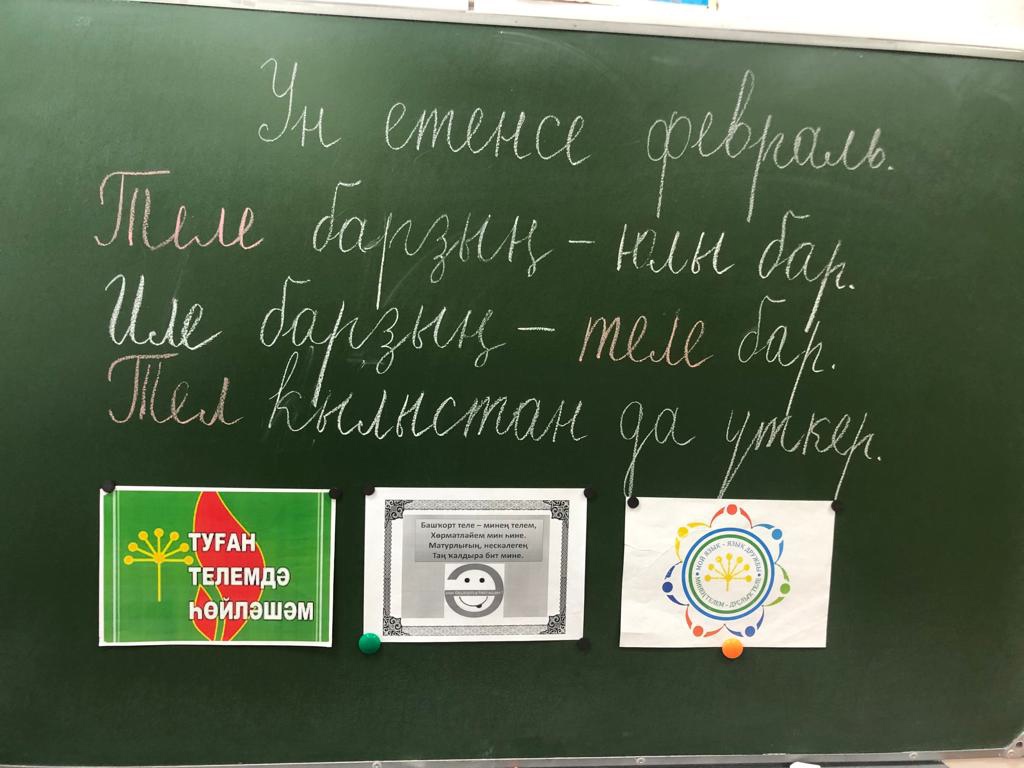 Ун етенсе февраль.
Теле барҙың – юлы бар.
Иле барҙың – теле бар.
Тел ҡылыстан да үткер.
ТУҒАН
ТЕЛЕМДӘ
ҺӨЙЛӘШӘМ
Башҡорт теле – минең телем,
Хөрмәтләйем мин һине.
Матурлығың, нескәлегең
Таң ҡалдыра бит мине.
МОЙ ЯЗЫК - ЯЗЫК ДРУЖБЫ
МИНЕҢ ТЕЛЕМ - ДУСЛЫҠ ТЕЛЕ